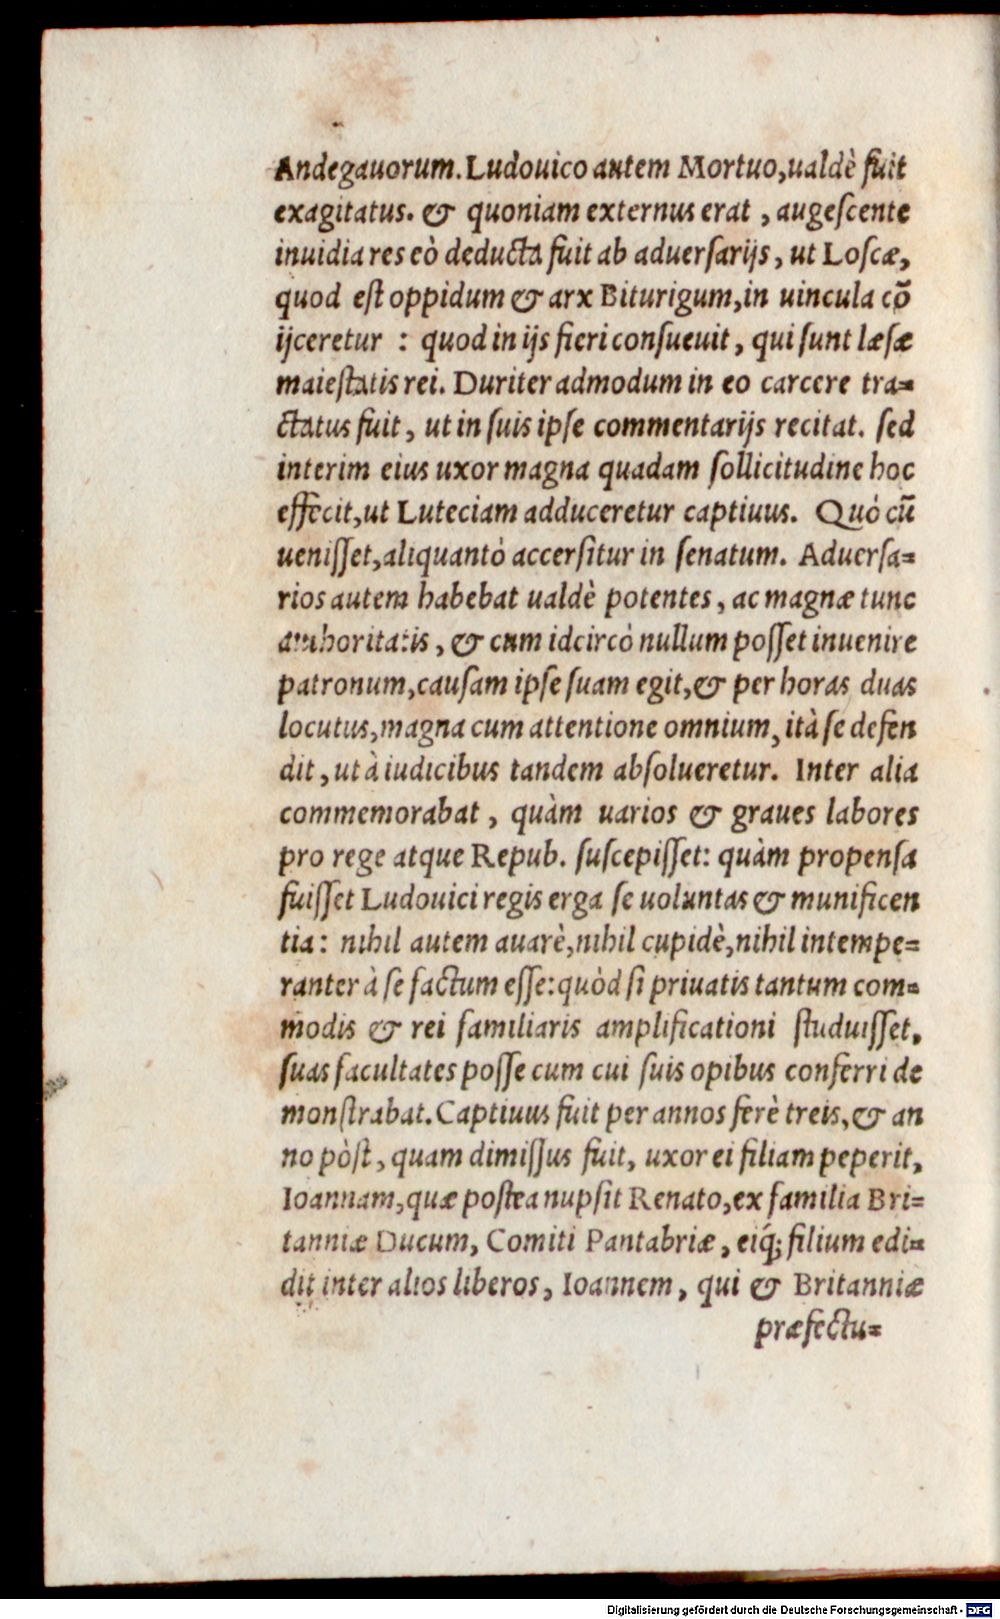 Andegauorum. Ludouico autem Mortuo, ualdè fuit
exagitatus. & quoniam externus erat, augescente
inuidia res eò deducta fuit ab aduersarijs, ut Loscæ,
quod est oppidum & arx Biturigum, in uincula cō
ijceretur : quod in ijs fieri consueuit, qui sunt læsæ
maiestatis rei. Duriter admodum in eo carcere tra=
ctatus fuit, ut in suis ipse commentarijs recitat. sed
interim eius uxor magna quadam sollicitudine hoc
effecit, ut Luteciam adduceretur captiuus. Quò cū
uenisset, aliquantò accersitur in senatum. Aduersa=
rios autem habebat ualdè potentes, ac magnæ tunc
authoritatis, & cum idcircò nullum posset inuenire
patronum, causam ipse suam egit, & per horas duas
locutus, magna cum attentione omnium, ità se defen
dit, ut à iudicibus tandem absolueretur. Inter alia
commemorabat, quàm uarios & graues labores
pro rege atque Repub. suscepisset: quàm propensa
fuisset Ludouici regis erga se uoluntas & munificen
tia: nihil autem auarè, nihil cupidè, nihil intempe=
ranter à se factum esse: quòd si priuatis tantum com=
modis & rei familiaris amplificationi studuisset,
suas facultates posse cum cui suis opibus conferri de
monstrabat. Captiuus fuit per annos ferè treis, & an
no pòst, quam dimissus fuit, uxor ei filiam peperit,
Ioannam, quæ postea nupsit Renato, ex familia Bri=
tanniæ Ducum, Comiti Pantabriæ, eiq́; filium edi=
dit inter alios liberos, Ioannem, qui & Britanniæ
præfectu=
Digitalisierung gefördert durch die Deutsche Forschungsgemeinschaft - DFG